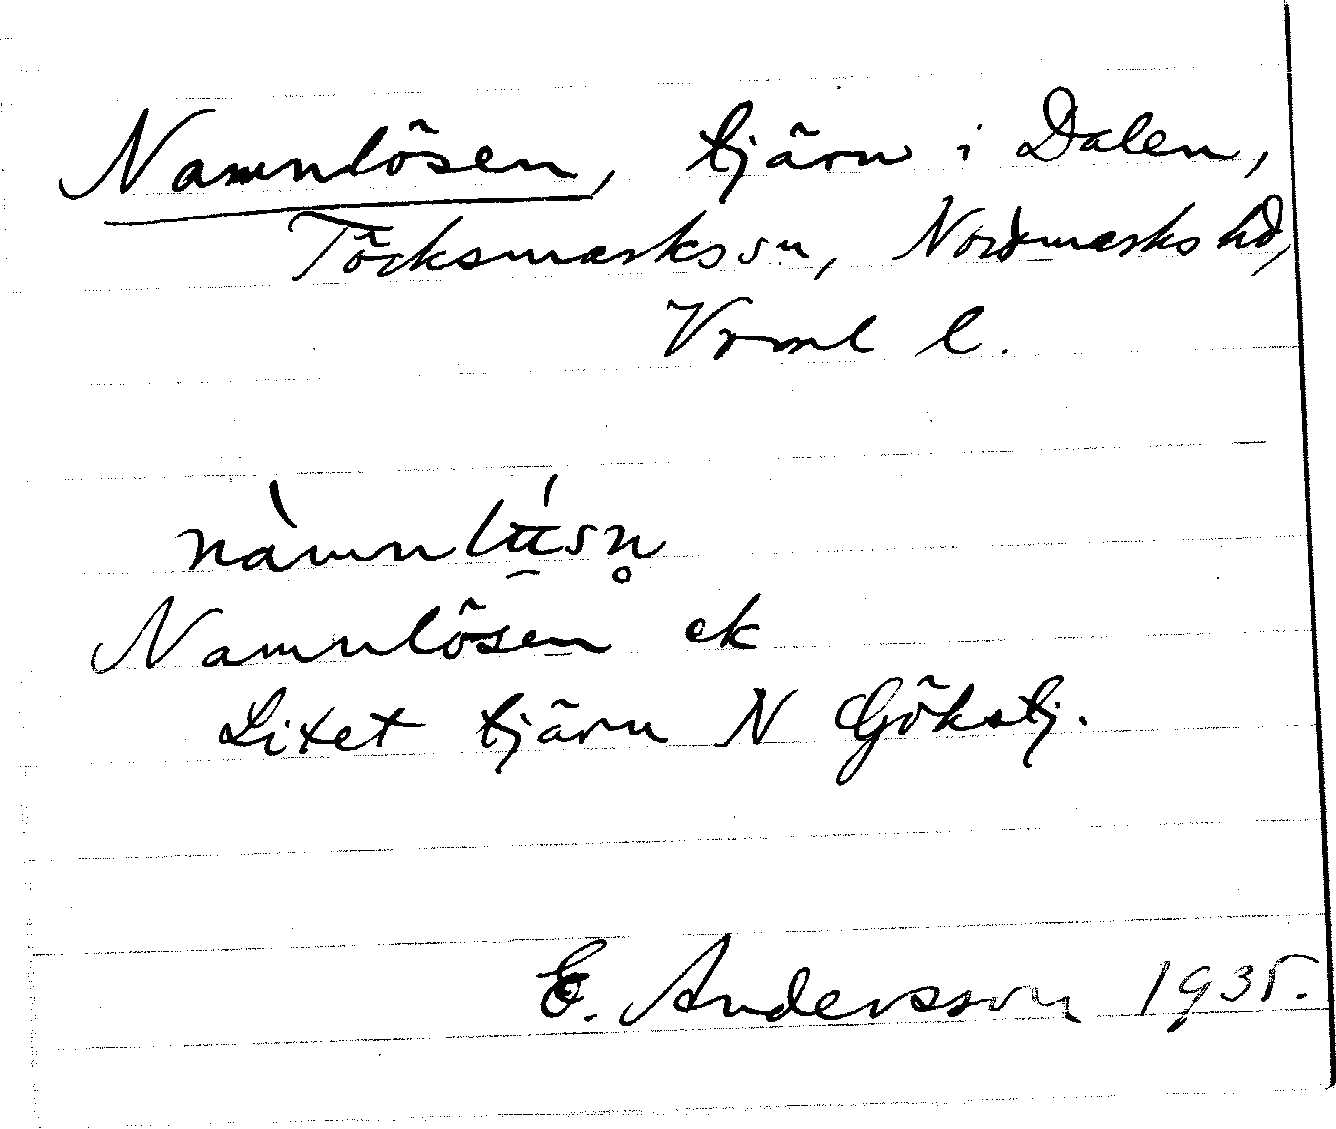 Namnlösen, tjärn i Dalen,
Töcksmarks sn, Nordmarks hd,
Vrml l.
Namnlösen ek
Litet tjärn N Gökstj.
E. Andersson 1935.